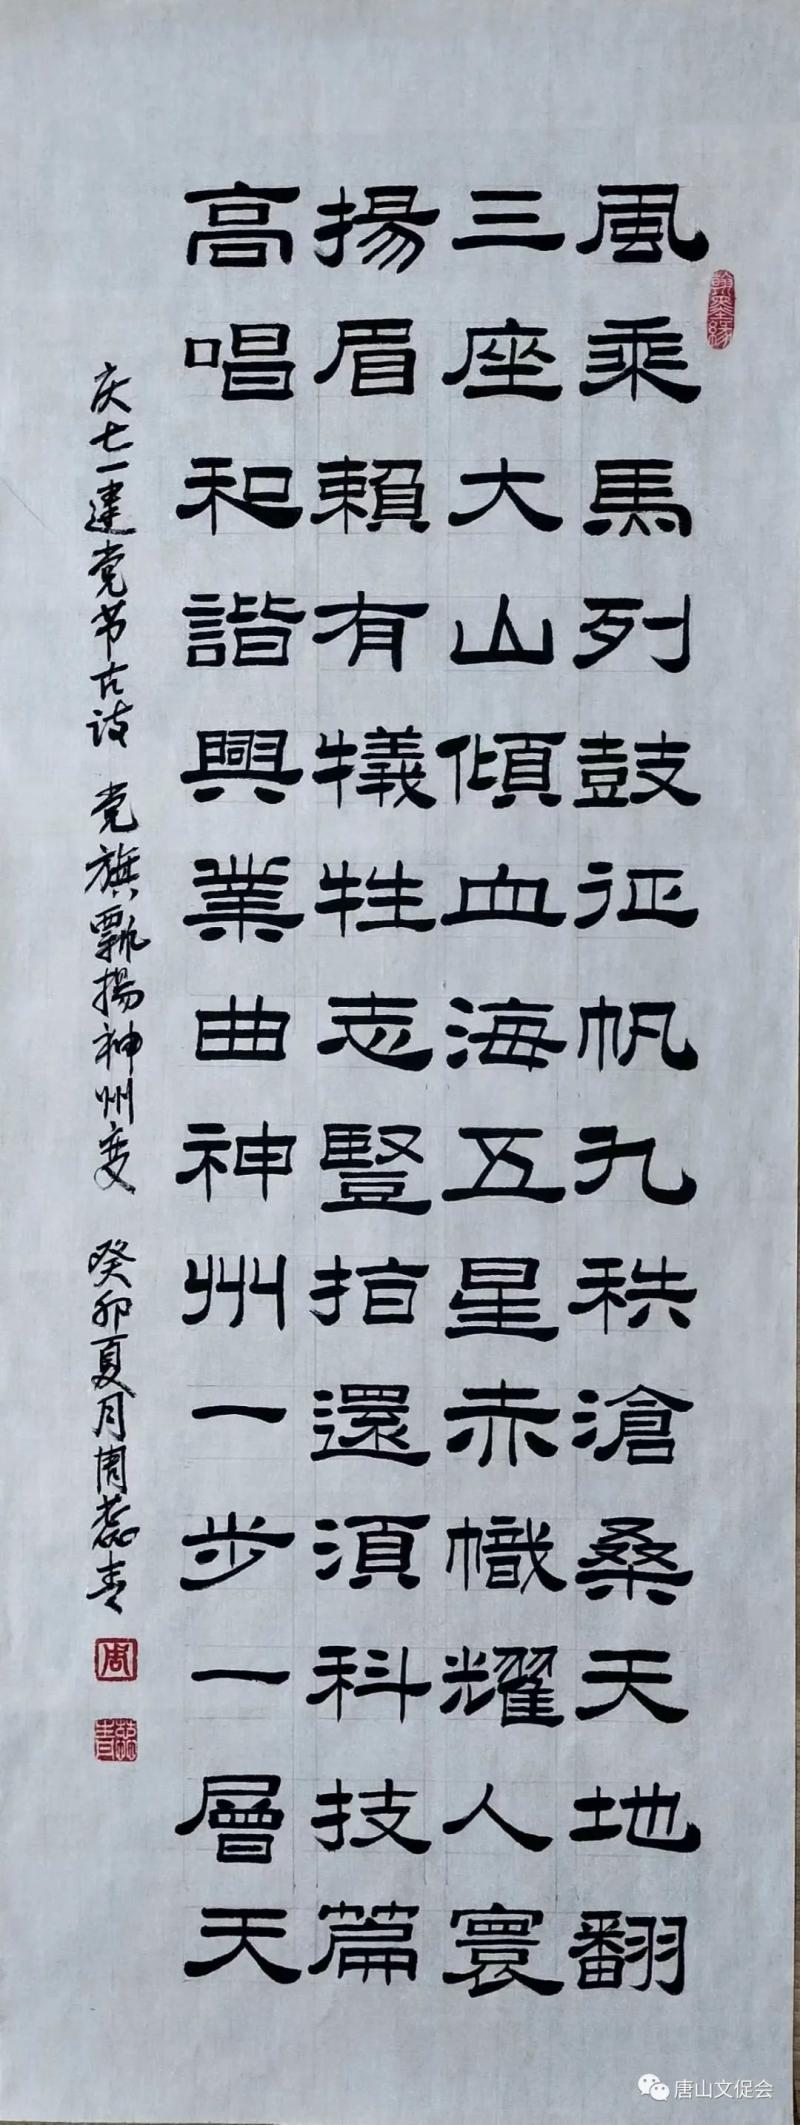 風乘馬列鼓征帆九秩滄桑天地翻
三座大山傾血海五星赤幟耀人寰
揚眉賴有犠牲志豎指還須科技篇
高唱和諧興業曲神州一步一層天
庆七一建党节古诗 党旗飘揚神州变 癸卯夏月周蕊青
翰墨缘
周
蕊青
唐山文促会